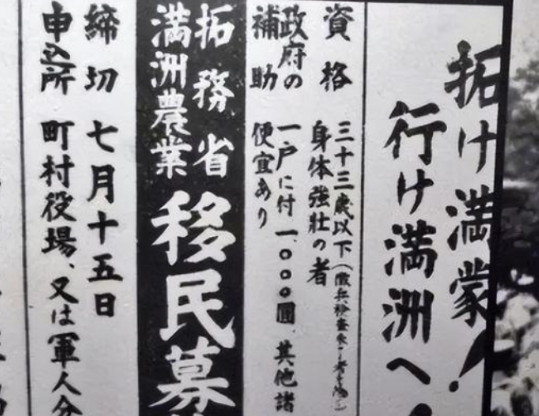 拓け満蒙!
行け満洲へ
資格 三十三歳以下
身体強壮の者
政府の補助 一戸に付一、〇〇〇圓 其他諸
便宜あり
拓務省
満洲農業
移民募
締切 七月十五日
申込所 町村役場、又は軍人分